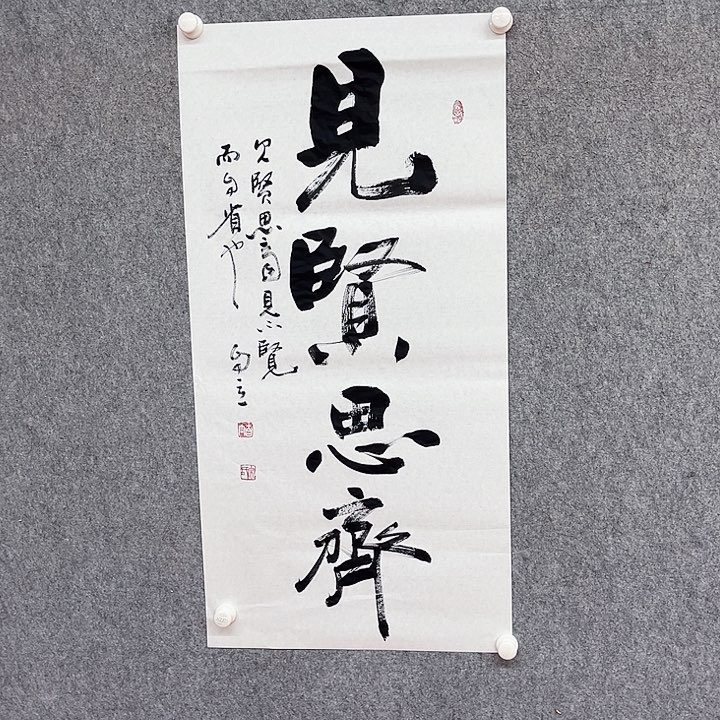 見賢思齊
见賢思齐見不賢
而自省也